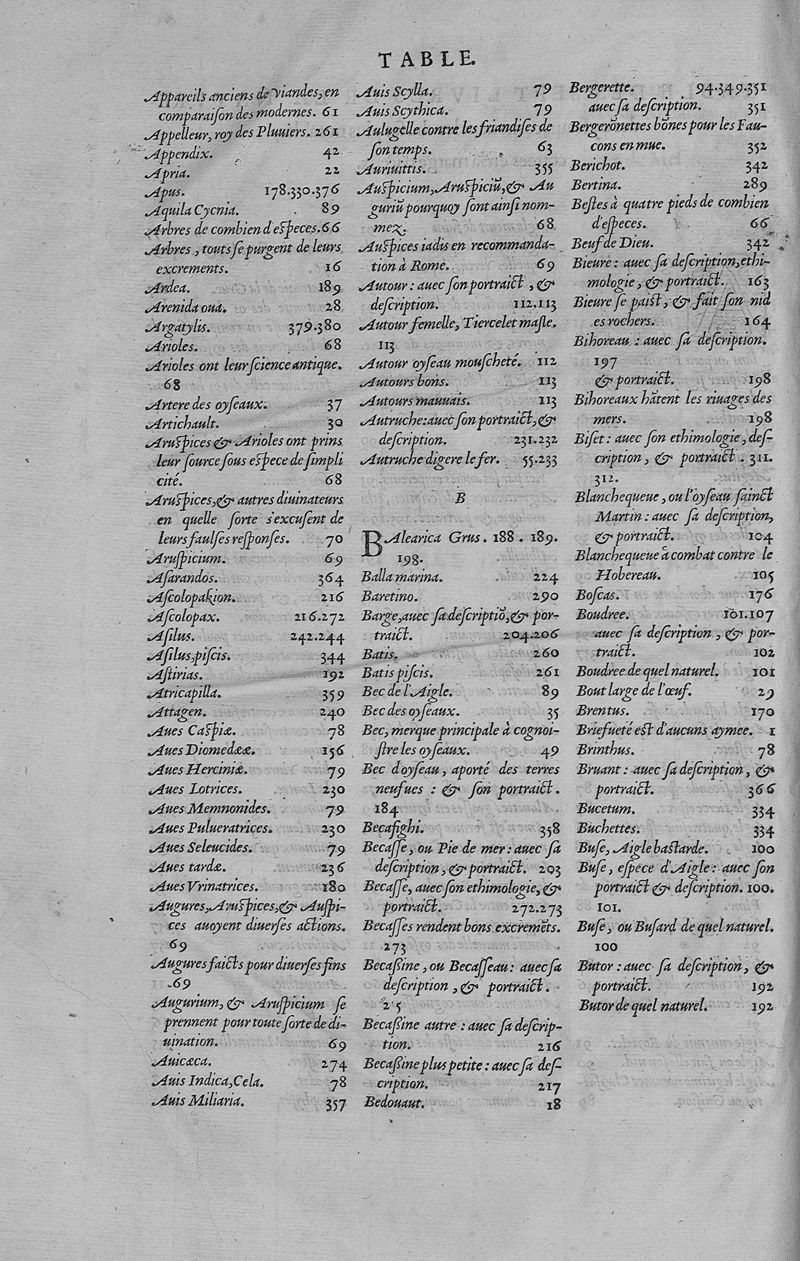 TABLE.
Appareils anciens de viandes, en
comparaiſon des modernes. 61
Appelleur, roy des Pluuiers. 261
Appendix. 42
Apria. 22
Apus. 178.330.376
Aquila Cycnia. 89
Arbres de combien d'eſpeces. 66
Arbres, touts ſe purgent de leurs
excrements. 16
Ardea. 189
Arenida oua. 28
Argatylis. 379.380
Arioles. 68
Arioles ont leur ſcience antique.
68
Artere des oyſeaux. 37
Artichault. 30
Aruſpices & Arioles ont prins
leur ſource ſous eſpece de ſimpli
cité. 68
Aruſpices, & autres diuinateurs
en quelle ſorte s'excuſent de
leurs faulſes reſponſes. 70
Aruſpicium. 69
Aſarandos. 364
Aſcolopakion. 216
Aſcolopax. 216.272
Aſilus. 242.244
Aſilus, piſcis. 344
Aſtirias. 192
Atricapilla. 359
Attagen. 240
Aues Caſpiæ. 78
Aues Diomedææ. 156
Aues Herciniæ. 79
Aues Lotrices. 230
Aues Memnonides. 79
Aues Pulueratrices. 230
Aues Seleucides. 79
Aues tardæ. 236
Aues Vrinatrices. 180
Augures, Aruſpices, & Auſpi-
ces auoyent diuerſes actions.
69
Augures faicts pour diuerſes fins
69
Augurium, & Aruſpicium ſe
prennent pour toute ſorte de di-
uination. 69
Auicæca. 274
Auis Indica, Cela. 78
Auis Miliaria. 357
Auis Scylla. 79
Auis Scythica. 79
Aulugelle contre les friandiſes de
ſon temps. 63
Auriuittis. 355
Auſpicium, Aruſpiciũ, & Au
guriũ pourquoy ſont ainſi nom-
mez. 68
Auſpices iadis en recommanda-
tion à Rome. 69
Autour : auec ſon portraict, &
deſcription. 112.113
Autour femelle, Tiercelet maſle.
113
Autour oyſeau mouſcheté. 112
Autours bons. 113
Autours mauuais. 113
Autruche: auec ſon portraict, &
deſcription. 231.232
Autruche digere le fer. 55.233
B
BAlearica Grus. 188. 189.
198.
Balla marina. 224
Baretino. 290
Barge, auec ſa deſcriptiõ, & por-
traict. 204.206
Batis. 260
Batis piſcis. 261
Bec de l'Aigle. 89
Bec des oyſeaux. 35
Bec, merque principale à cognoi-
ſtre les oyſeaux. 49
Bec d'oyſeau, aporté des terres
neufues : & ſon portraict.
184
Becafighi. 358
Becaſſe, ou Pie de mer: auec ſa
deſcription, & portraict. 203
Becaſſe, auec ſon ethimologie, &
portraict. 272.273
Becaſſes rendent bons excremẽts.
273
Becaſſine, ou Becaſſeau: auec ſa
deſcription, & portraict.
215
Becaſſine autre : auec ſa deſcrip-
tion. 216
Becaſſine plus petite: auec ſa deſ-
cription. 217
Bedouaut. 18
Bergerette. 94.349.351
auec ſa deſcription. 351
Bergerõnettes bõnes pour les Fau-
cons en mue. 352
Berichot. 342
Bertina. 289
Beſtes à quatre pieds de combien
d'eſpeces. 66
Beuf de Dieu. 342
Bieure : auec ſa deſcription, ethi-
mologie, & portraict. 163
Bieure ſe paiſt, & fait ſon nid
es rochers. 164
Bihoreau : auec ſa deſcription.
197
& portraict. 198
Bihoreaux hãtent les riuages des
mers. 198
Biſet : auec ſon ethimologie, deſ-
cription, & portraict. 311.
312.
Blanchequeue, ou l'oyſeau ſainct
Martin : auec ſa deſcription,
& portraict. 104
Blanchequeue à combat contre le
Hobereau. 105
Boſcas. 176
Boudree. 101.107
auec ſa deſcription, & por-
traict. 102
Boudree de quel naturel. 101
Bout large de l'œuf. 29
Brentus. 170
Briefueté eſt d'aucuns aymee. 1
Brinthus. 78
Bruant : auec ſa deſcription, &
portraict. 366
Bucetum. 334
Buchettes. 334
Buſe, Aigle baſtarde. 100
Buſe, eſpece d'Aigle : auec ſon
portraict & deſcription. 100.
101.
Buſe, ou Buſard de quel naturel.
100
Butor : auec ſa deſcription, &
portraict. 192
Butor de quel naturel. 192